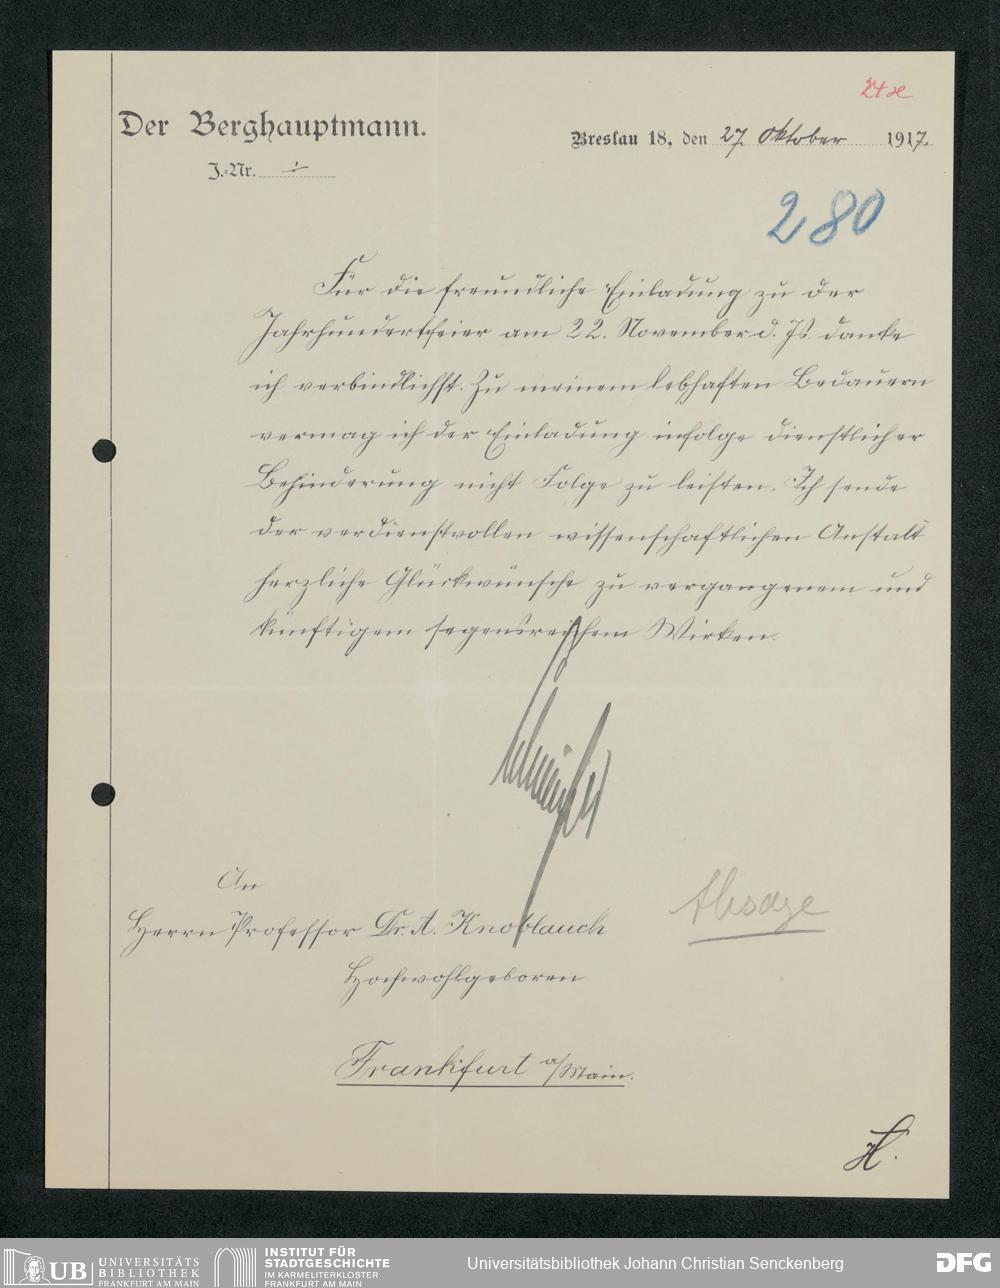 24 x
Der Berghauptmann.
Breslau 18, den 27. Oktober 1917.
J.-Nr.
280
Für die freundliche Einladung zu der
Jahrhundertfeier am 22. November d. Js. danke
ich verbindlichst. Zu meinem lebhaften Bedauern
vermag ich der Einladung infolge dienstlicher
Behinderung nicht Folge zu leisten. Ich sende
der verdienstvollen wissenschaftlichen Anstalt
herzliche Glückwünsche zu vergangenem und
künftigem segensreichem Wirken.
An
Herrn Professor Dr. A. Knoblauch
Absage
Hochwohlgeboren
Frankfurt a/Main.
H.
UB UNIVERSITÄTS
BIBLIOTHEK
FRANKFURT AM MAIN
INSTITUT FÜR
STADTGESCHICHTE
IM KARMELITERKLOSTER
FRANKFURT AM MAIN
Universitätsbibliothek Johann Christian Senckenberg
DFG